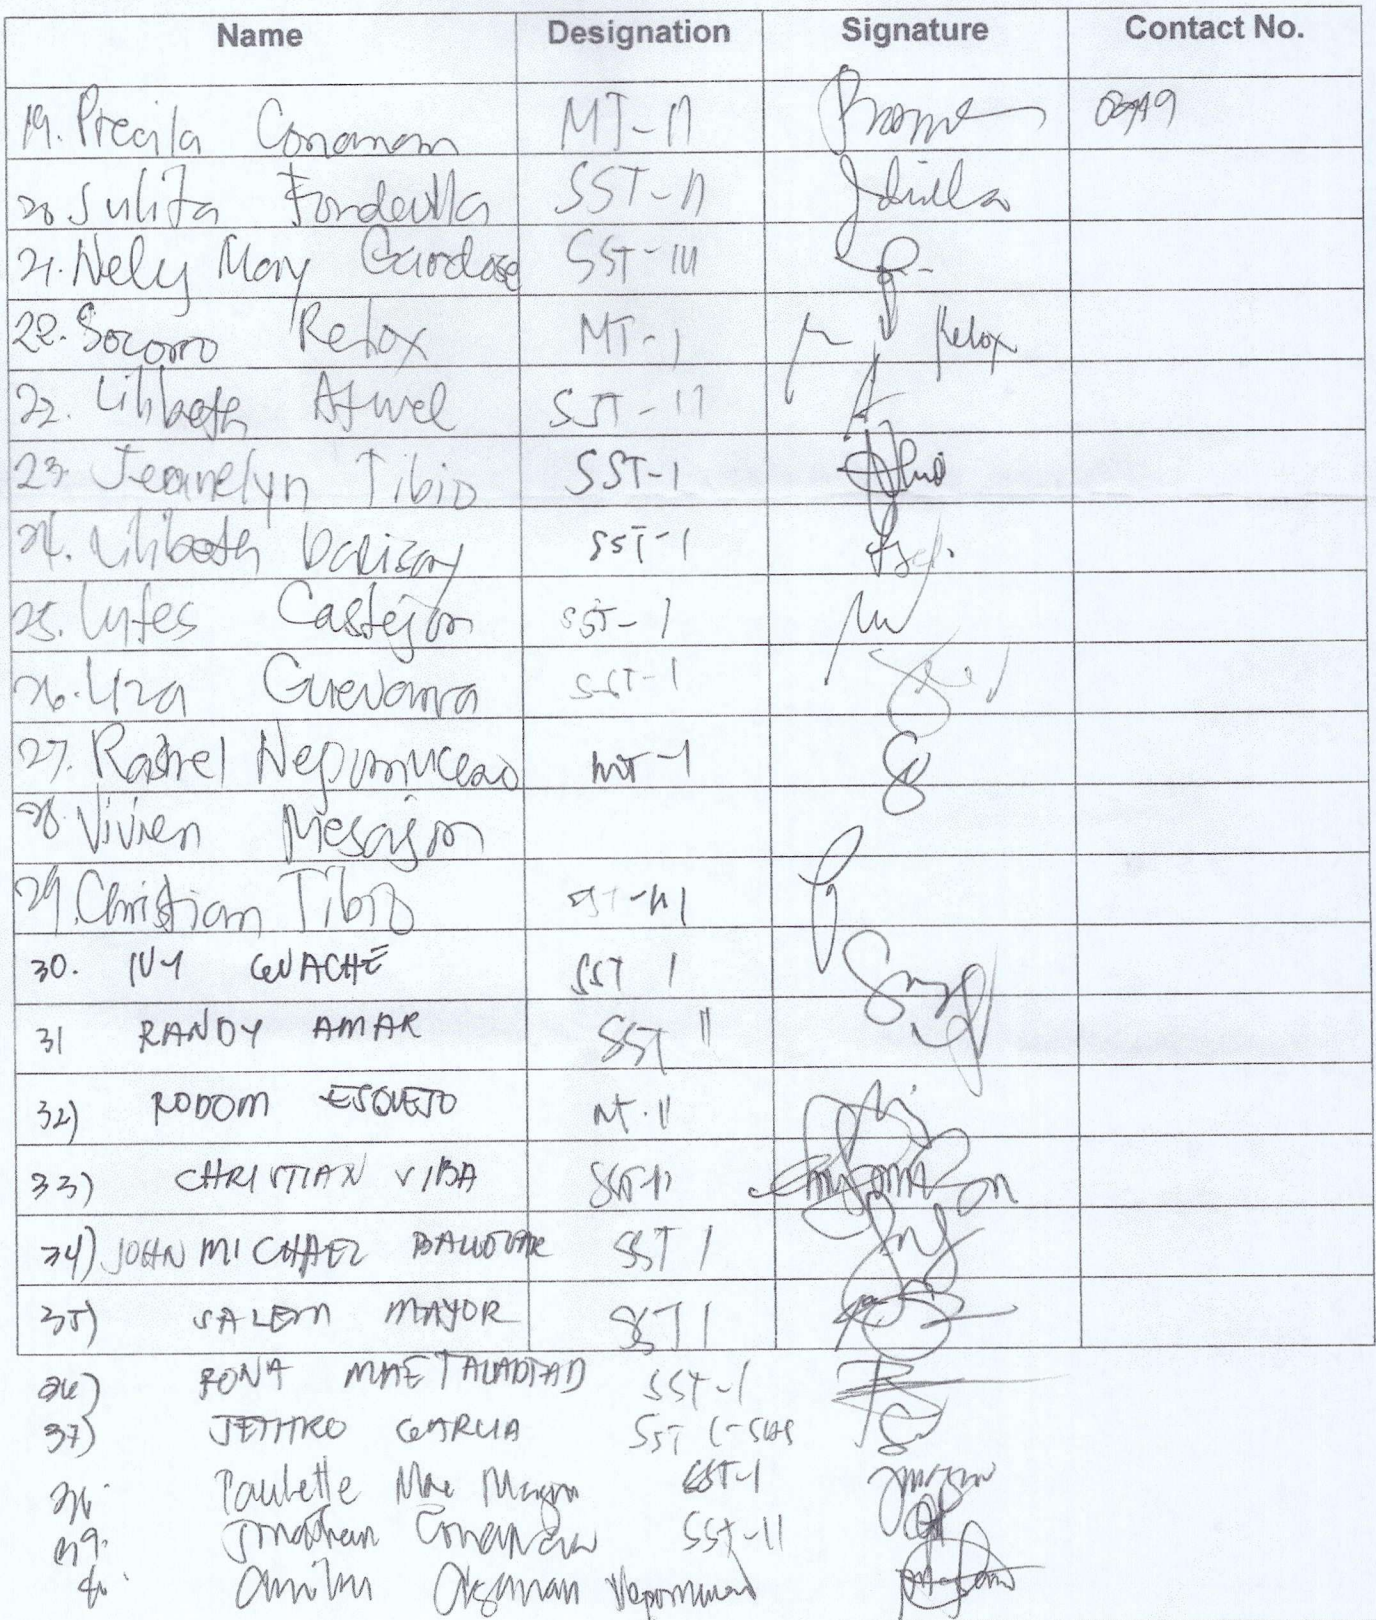 Name Designation Signature Contact No.
19. Precila Conanan MT-II
20 Julita Fondevilla SST-II
21. Nely Mary Gardose SST-III
22. Socorro Relox MT-I Relox
22. Lilibeth Atwel SST-II
23. Jeanelyn Tibio SST-1
24. Lilibeth Darisay SST-1
25. Lyfes Castejon SST-1
26. Liza Guevarra SST-1
27. Rachel Nepomuceno MT-I
28. Vivien Mesajon
29. Christian Tibio
30. IVY GUACHE SST I
31 RANDY AMAR SST II
32) RODOM ESQUEJO MT-II
33) CHRISTIAN VIBA SST-II
34) JOHN MICHAEL SST I
35) SALEM MAYOR SST I
36) RONA MAE TALABTAD SST-I
37) JETHRO GARCIA SST I-SHS
38. Paulette Mae SST-I
39. Jonathan Conanan SST-II
40. Nepomuceno